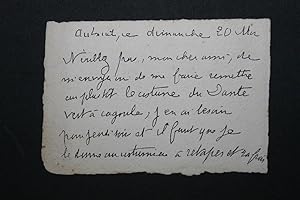 ce dimanche 20 Mai
N'oubliez pas, mon cher ami, de
m'envoyer ou de me faire remettre
au plus tôt le costume du Dante
vert à cagoule, j'en ai besoin
pour jeudi soir et il faut que je
le donne au costumier à retaper et